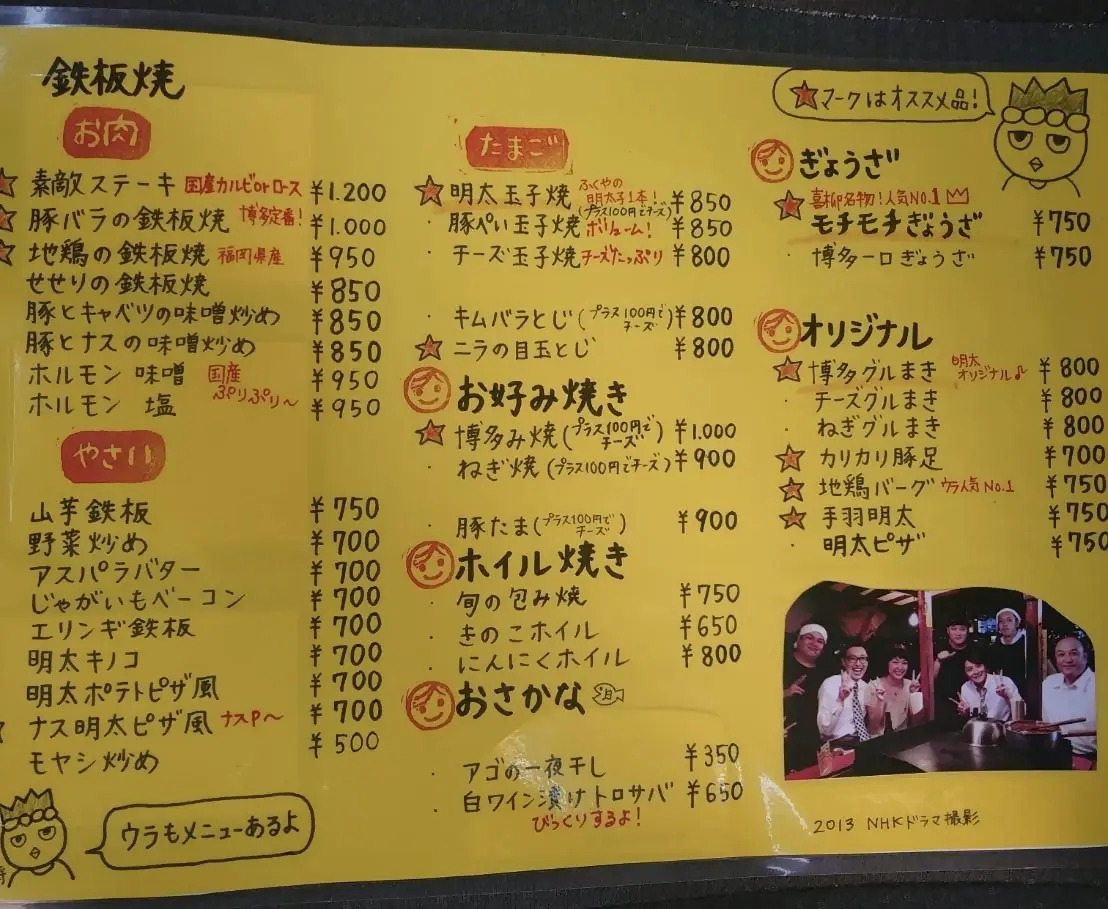 鉄板焼
お肉
素敵ステーキ 国産カルビorロース ¥1.200
豚バラの鉄板焼 博多定番! ¥1.000
地鶏の鉄板焼 福岡県産 ¥950
せせりの鉄板焼 ¥850
豚とキャベツの味噌炒め ¥850
豚とナスの味噌炒め ¥850
ホルモン 味噌 ¥950
国産
ぷりぷり〜
ホルモン 塩 ¥950
やさい
山芋鉄板 ¥750
野菜炒め ¥700
アスパラバター ¥700
じゃがいもベーコン ¥700
エリンギ鉄板 ¥700
明太キノコ ¥700
明太ポテトピザ風 ¥700
ナス明太ピザ風 ナスP〜 ¥700
モヤシ炒め ¥500
ウラもメニューあるよ
たまご
明太玉子焼 ¥850
ふくやの
明太子1本!
(プラス100円でチーズ)
豚ぺい玉子焼 ボリューム! ¥850
チーズ玉子焼 チーズたっぷり ¥800
キムバラとじ(プラス100円でチーズ) ¥800
ニラの目玉とじ ¥800
お好み焼き
博多み焼(プラス100円でチーズ) ¥1.000
ねぎ焼(プラス100円でチーズ) ¥900
豚たま(プラス100円でチーズ) ¥900
ホイル焼き
旬の包み焼 ¥750
きのこホイル ¥650
にんにくホイル ¥800
おさかな
アゴの一夜干し ¥350
白ワイン漬けトロサバ ¥650
びっくりするよ!
★マークはオススメ品!
ぎょうざ
喜柳名物!人気No.1
モチモチぎょうざ ¥750
博多一口ぎょうざ ¥750
オリジナル
博多グルまき ¥800
明太
オリジナル♪
チーズグルまき ¥800
ねぎグルまき ¥800
カリカリ豚足 ¥700
地鶏バーグ ウラ人気No.1 ¥750
手羽明太 ¥750
明太ピザ ¥750
2013 NHKドラマ撮影